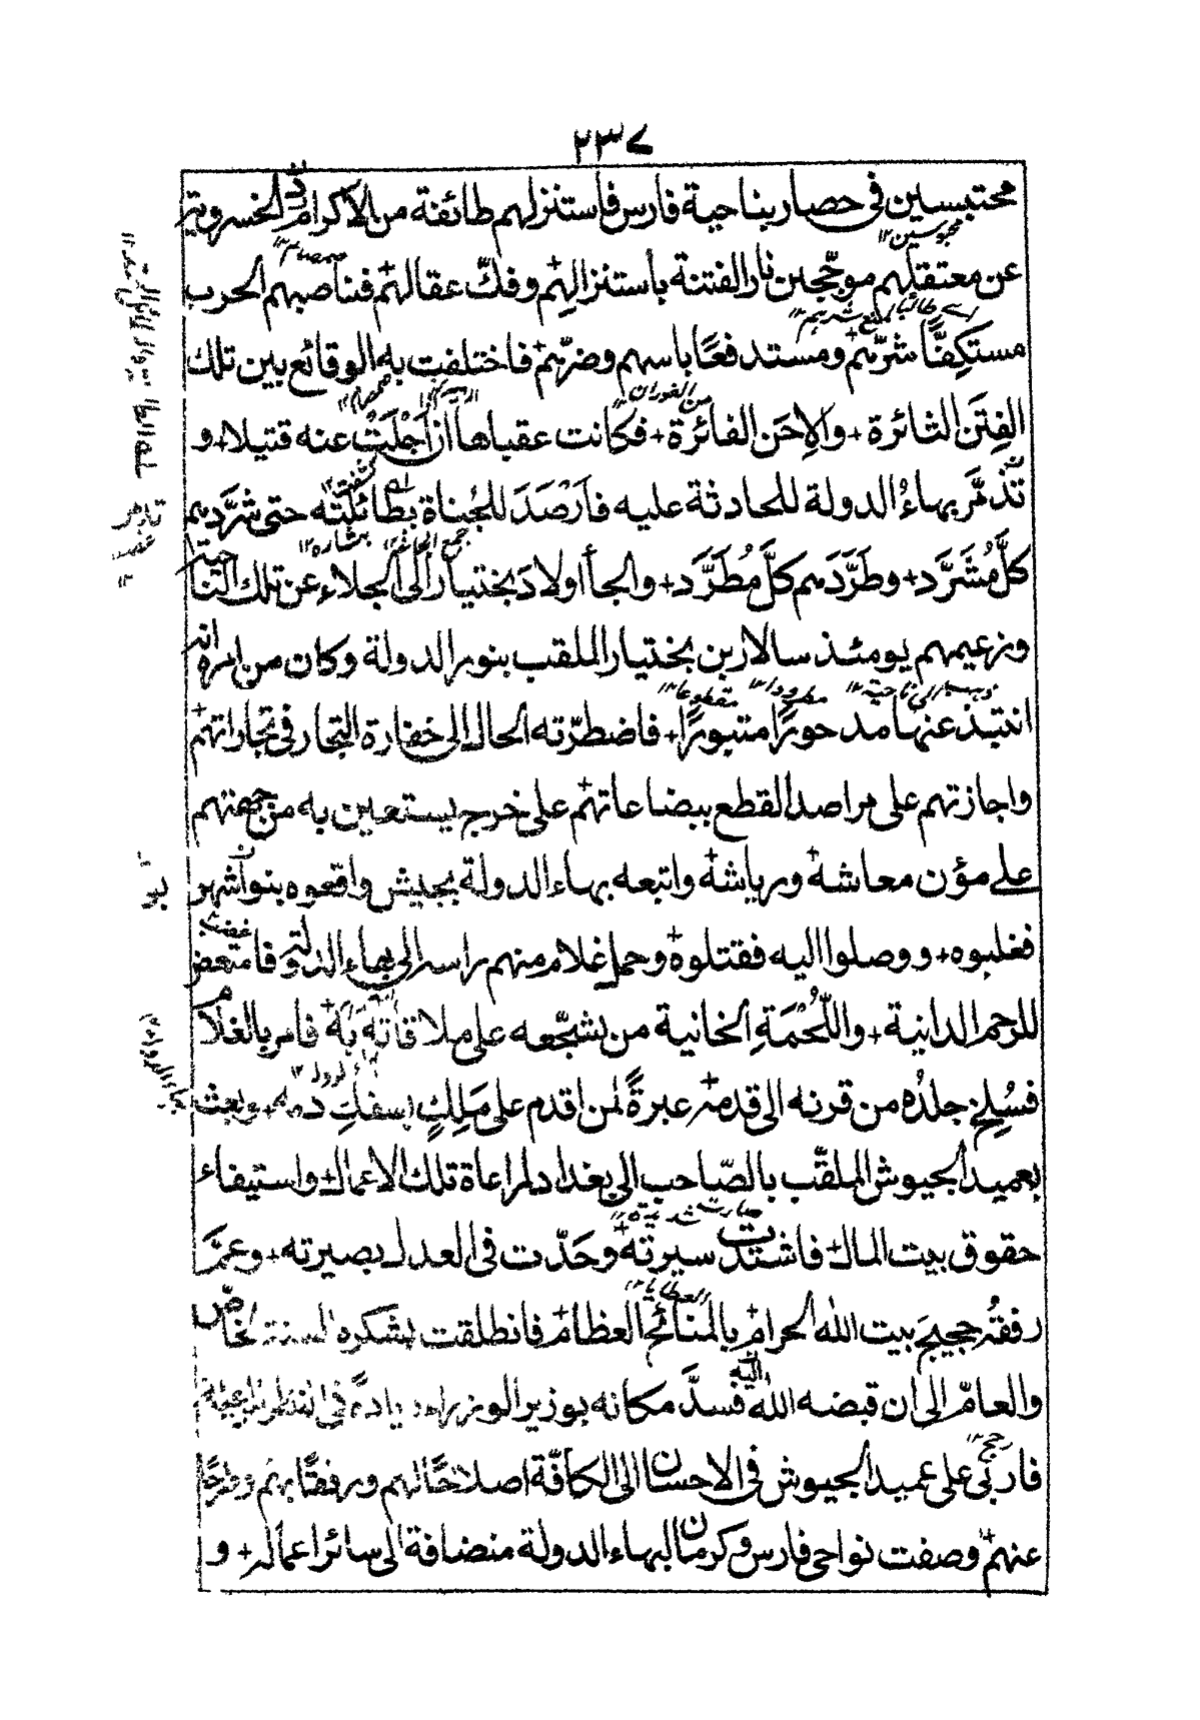 ٢٣٧
محتبسين في حصار بناحية فارس فاستنزلهم طائفة من الاكراد الخسروية
عن معتقلهم موجّجين نار الفتنة بأستنزالهم وفكّ عقالهم فناصبهم الحرب
مستكِفًّا شرّهم ومستدفعًا باسهم وضرّهم فاختلفت به الوقائع بين تلك
الفِتَن الثائرة والاِحَن الفائرة فكانت عقباها ان اَجْلَتْ عنه قتيلا و
تذمَّر بهاءُ الدولة للحادثة عليه فاَرْصَدَ للجُناة بطائلته حتى شرَّدهم
كلَّ مُشَرَّد وطَرَّدَهم كلَّ مُطَرَّد والجأ اولاد بختيار الى الجلاء عن تلك الناحية
وزعيمهم يومئذ سالار بن بختيار الملقب بنور الدولة وكان من امره انه
انتبذ عنها مدحورًا متبورًا فاضطرّته الحال الى خفارة التجار في تجاراتهم
واجازتهم على مراصد القطع ببضاعاتهم على خرج يستعين به من جهتهم
على مؤن معاشه ورياشه واتبعه بهاء الدولة بجيش واقعوه بنواشهر
فغلبوه ووصلوا اليه فقتلوه وحمل غلام منهم راسه الى بهاء الدولة فامتعض
للرحم الدانية واللُّحْمَةِ الخانية من يشجّعه على ملاقاته به فامر بالغلام
فسُلِخ جلدُه من قرنه الى قدمه عبرةً لمن اقدم على مَلِكٍ بسفكِ دمه وبعث
بعميد الجيوش الملقّب بالصّاحب الى بغداد لمراعاة تلك الاعمال واستيفاء
حقوق بيت المال فاشتدّت سيرته وحَدّت في العدل بصيرته وعمَّ
رفقُه حجيجَ بيت الله الحرام بالمنائح العظام فانطلقت بشكره السنة الخاصّ
والعامّ الى ان قبضه الله اليه فسدَّ مكانه بوزير الوزراء زيادةً في النظر للرعية
فاربى على عميد الجيوش في الاحسان الى الكافّة اصلاحًا لهم ورفقًا بهم وطرحًا
عنهم وصفت نواحي فارس وكرمان لبهاء الدولة منضافة الى سائر اعماله و